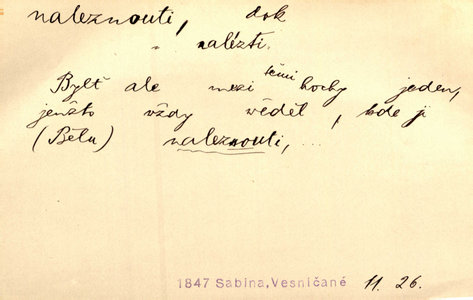 naleznouti, dok
" nalézti.
Bylť ale mezi těmi hochy jeden,
jenžto vždy věděl, kde ji
(Bětu) naleznouti, ...
1847 Sabina, Vesničané 11. 26.